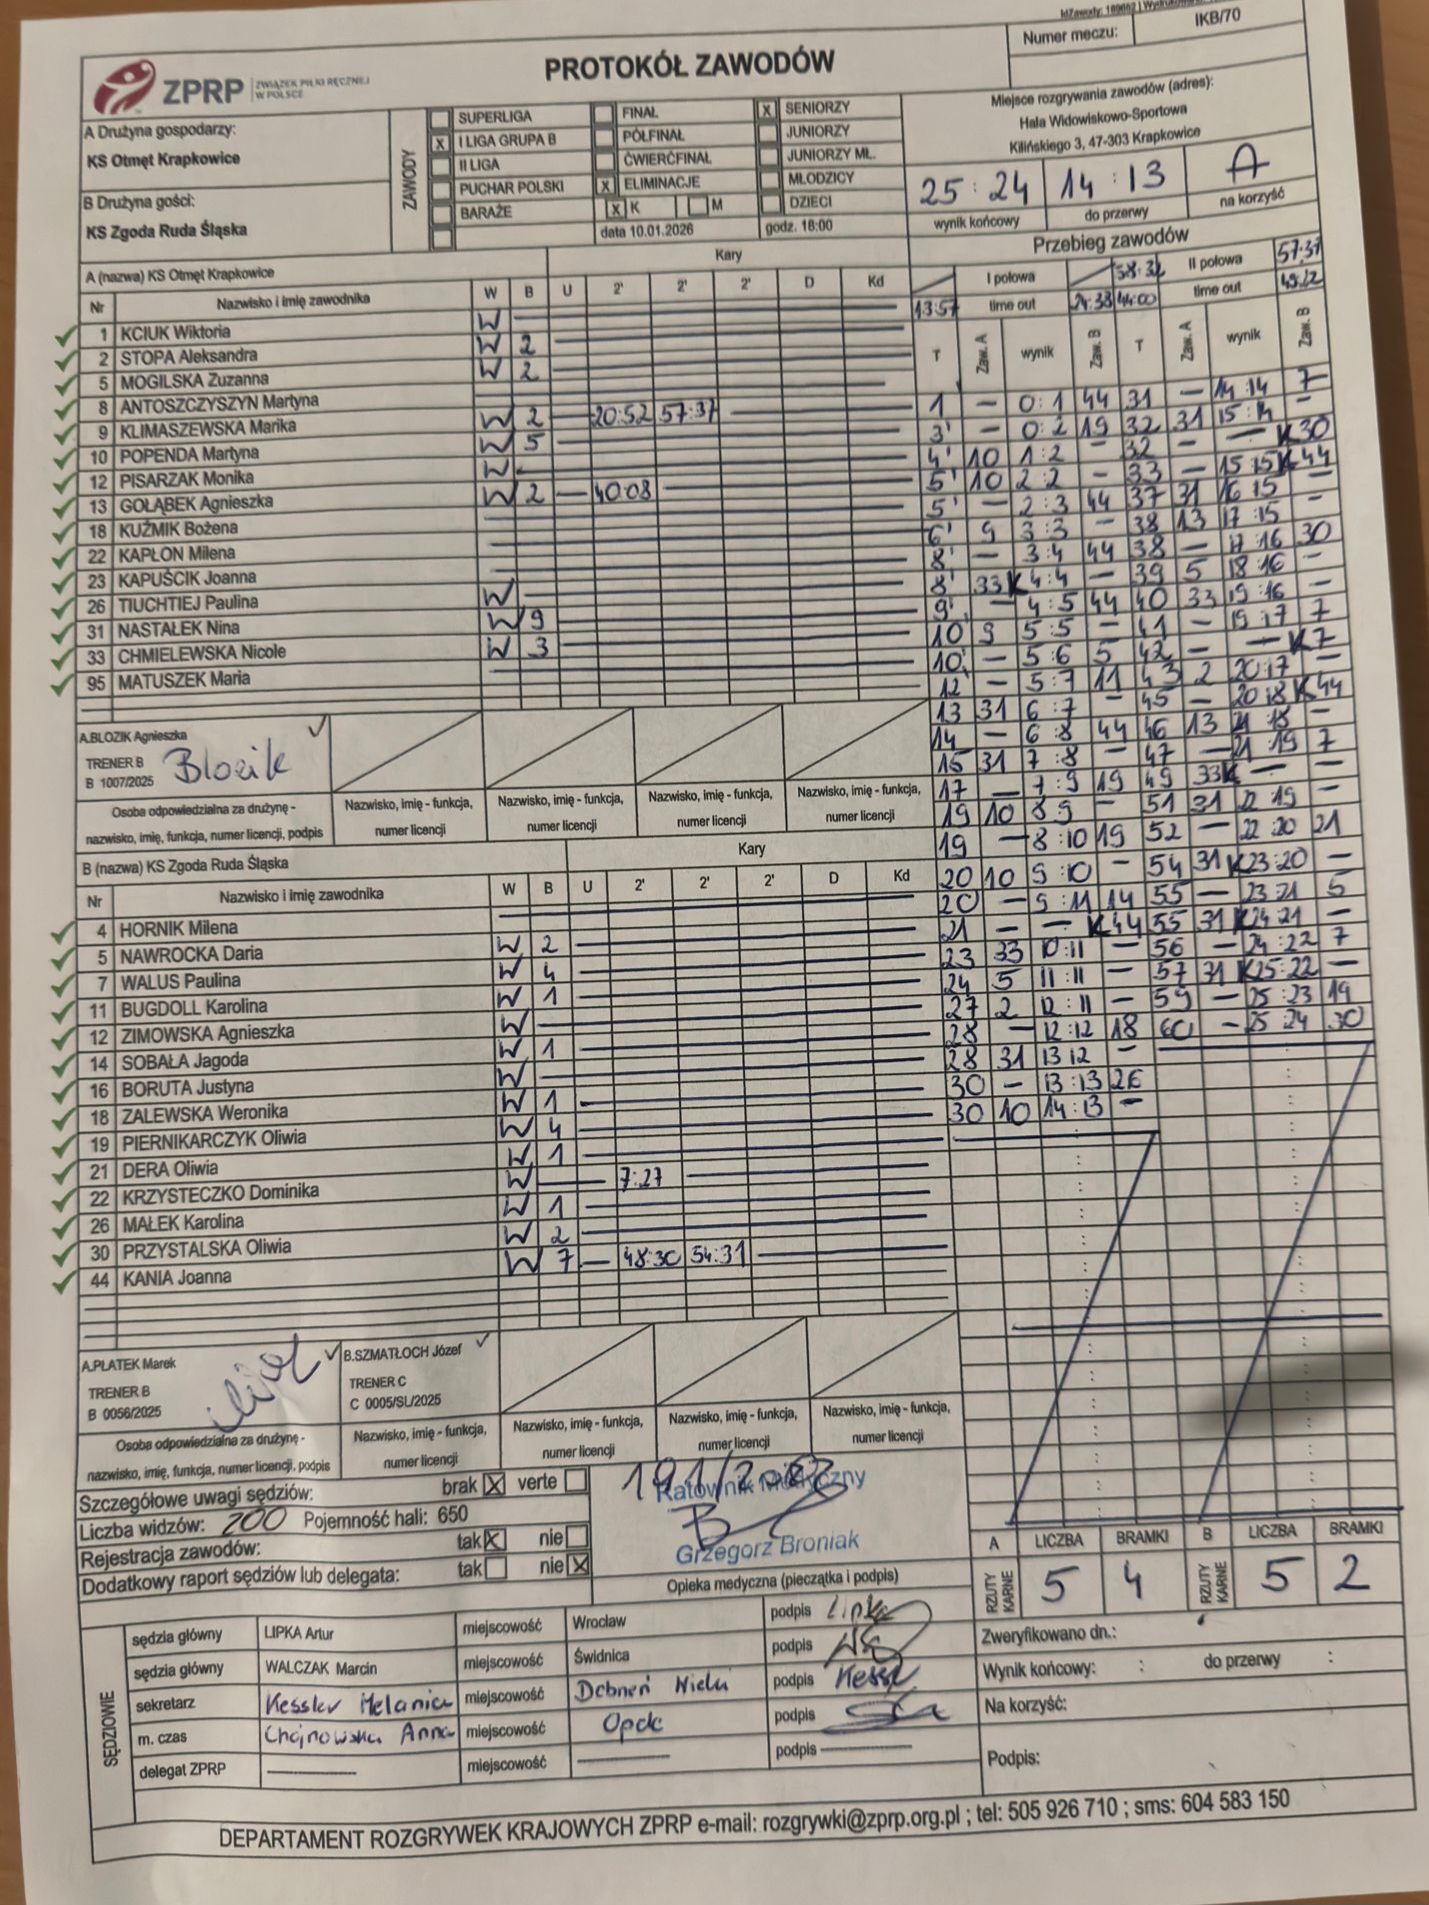 IdZawody: 189662 | Wydrukowano:
Numer meczu: IKB/70
ZPRP ZWIĄZEK PIŁKI RĘCZNEJ W POLSCE
PROTOKÓŁ ZAWODÓW
A Drużyna gospodarzy:
KS Otmęt Krapkowice
B Drużyna gości:
KS Zgoda Ruda Śląska
ZAWODY
SUPERLIGA
X I LIGA GRUPA B
II LIGA
PUCHAR POLSKI
BARAŻE
FINAŁ
PÓŁFINAŁ
ĆWIERĆFINAŁ
X ELIMINACJE
X K M
data 10.01.2026
X SENIORZY
JUNIORZY
JUNIORZY MŁ.
MŁODZICY
DZIECI
godz. 18:00
Miejsce rozgrywania zawodów (adres):
Hala Widowiskowo-Sportowa
Kilińskiego 3, 47-303 Krapkowice
25 : 24 14 : 13 A
wynik końcowy do przerwy na korzyść
A (nazwa) KS Otmęt Krapkowice Kary
Nr Nazwisko i imię zawodnika W B U 2' 2' 2' D Kd
1 KCIUK Wiktoria W
2 STOPA Aleksandra W 2
5 MOGILSKA Zuzanna W 2
8 ANTOSZCZYSZYN Martyna
9 KLIMASZEWSKA Marika W 2 20:52 57:37
10 POPENDA Martyna W 5
12 PISARZAK Monika W
13 GOŁĄBEK Agnieszka W 2 40:08
18 KUŹMIK Bożena
22 KAPŁON Milena
23 KAPUŚCIK Joanna
26 TIUCHTIEJ Paulina W
31 NASTAŁEK Nina W 9
33 CHMIELEWSKA Nicole W 3
95 MATUSZEK Maria
A.BLOZIK Agnieszka
TRENER B
B 1007/2025
Blozik
Osoba odpowiedzialna za drużynę -
nazwisko, imię, funkcja, numer licencji, podpis
Nazwisko, imię - funkcja, numer licencji
Nazwisko, imię - funkcja, numer licencji
Nazwisko, imię - funkcja, numer licencji
Nazwisko, imię - funkcja, numer licencji
B (nazwa) KS Zgoda Ruda Śląska Kary
Nr Nazwisko i imię zawodnika W B U 2' 2' 2' D Kd
4 HORNIK Milena
5 NAWROCKA Daria W 2
7 WALUS Paulina W 4
11 BUGDOLL Karolina W 1
12 ZIMOWSKA Agnieszka W
14 SOBAŁA Jagoda W 1
16 BORUTA Justyna W
18 ZALEWSKA Weronika W 1
19 PIERNIKARCZYK Oliwia W 4
21 DERA Oliwia W 1
22 KRZYSTECZKO Dominika W 7:27
26 MAŁEK Karolina W 1
30 PRZYSTALSKA Oliwia W 2
44 KANIA Joanna W 7 48:30 54:31
A.PŁATEK Marek
TRENER B
B 0056/2025
B.SZMATŁOCH Józef
TRENER C
C 0005/SL/2025
Osoba odpowiedzialna za drużynę -
nazwisko, imię, funkcja, numer licencji, podpis
Nazwisko, imię - funkcja, numer licencji
Nazwisko, imię - funkcja, numer licencji
Nazwisko, imię - funkcja, numer licencji
Nazwisko, imię - funkcja, numer licencji
Przebieg zawodów
I połowa 38:32 II połowa 57:37
13:57 time out 24:38 44:00 time out 49:22
T Zaw. A wynik Zaw. B T Zaw. A wynik Zaw. B
1 – 0:1 44 31 – 14:14 7
3' – 0:2 19 32 31 15:14 –
4' 10 1:2 – 32 – – K30
5' 10 2:2 – 33 – 15:15 K44
5' – 2:3 44 37 31 16:15 –
6' 9 3:3 – 38 13 17:15 –
8' – 3:4 44 38 – 17:16 30
8' 33K 4:4 – 39 5 18:16 –
9' – 4:5 44 40 33 19:16 –
10 9 5:5 – 41 – 19:17 7
10' – 5:6 5 42 – – K7
12 – 5:7 11 43 2 20:17 –
13 31 6:7 – 45 – 20:18 K44
14 – 6:8 44 46 13 21:18 –
15 31 7:8 – 47 – 21:19 7
17 – 7:9 19 49 33K – –
19 10 8:9 – 51 31 22:19 –
19 – 8:10 19 52 – 22:20 21
20 10 9:10 – 54 31 K23:20 –
20 – 9:11 14 55 – 23:21 5
21 – – K44 55 31 K24:21 –
23 33 10:11 – 56 – 24:22 7
24 5 11:11 – 57 31 K25:22 –
27 2 12:11 – 59 – 25:23 19
28 – 12:12 18 60 – 25:24 30
28 31 13:12 –
30 – 13:13 26
30 10 14:13 –
Szczegółowe uwagi sędziów: brak X verte
Liczba widzów: 200 Pojemność hali: 650
Rejestracja zawodów: tak X nie
Dodatkowy raport sędziów lub delegata: tak nie X
Ratownik Medyczny
Grzegorz Broniak
Opieka medyczna (pieczątka i podpis)
A LICZBA BRAMKI B LICZBA BRAMKI
RZUTY KARNE 5 4 RZUTY KARNE 5 2
SĘDZIOWIE
sędzia główny LIPKA Artur miejscowość Wrocław podpis Lipka
sędzia główny WALCZAK Marcin miejscowość Świdnica podpis
sekretarz Kessler Melania miejscowość podpis Kessl
m. czas Chojnowska Anna miejscowość Opole podpis
delegat ZPRP miejscowość podpis
Zweryfikowano dn.:
Wynik końcowy: : do przerwy :
Na korzyść:
Podpis:
DEPARTAMENT ROZGRYWEK KRAJOWYCH ZPRP e-mail: rozgrywki@zprp.org.pl ; tel: 505 926 710 ; sms: 604 583 150